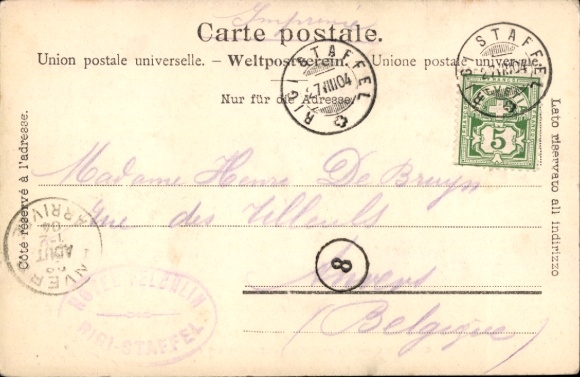 Imprimé
Carte postale.
Union postale universelle. - Weltpostverein. - Unione postale universale.
Nur für die Adresse.
RIGI STAFFEL
7.VIII.04
RIGI STAFFEL
VIII.04
5
Côté réservé à l'adresse.
Lato riservato all indirizzo
Madame Henri De Bruyn
Rue des Tilleuls
8
Anvers
(Belgique)
ANVERS
ARRIVÉE
AOUT
04
HOTEL FELCHLIN
RIGI-STAFFEL